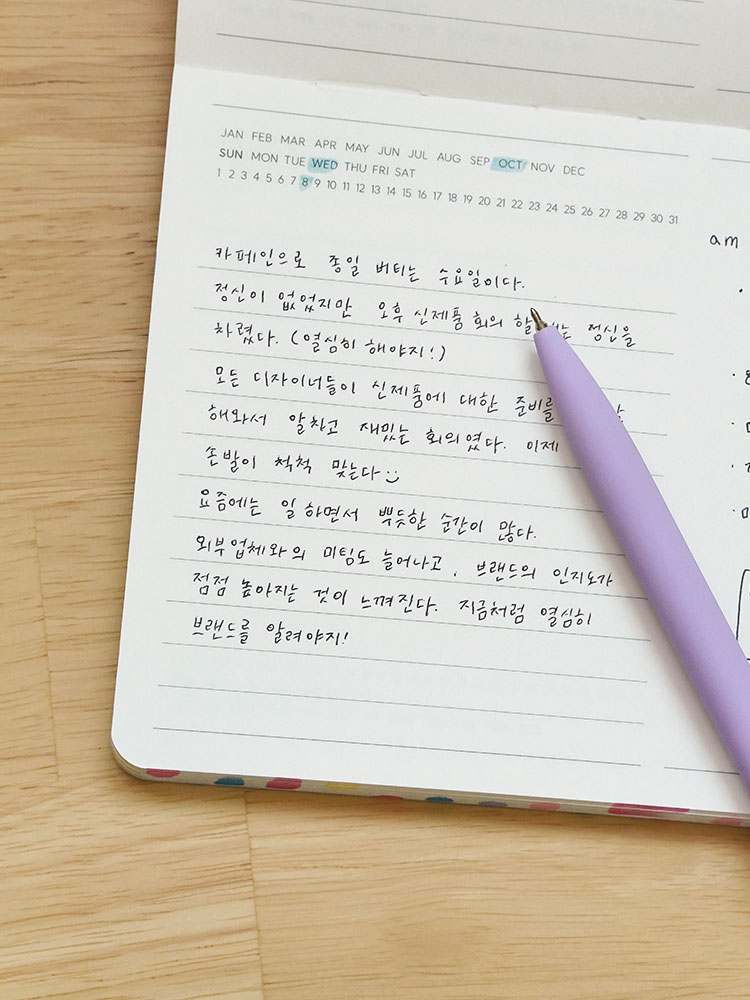 JAN FEB MAR APR MAY JUN JUL AUG SEP OCT NOV DEC
SUN MON TUE WED THU FRI SAT
1 2 3 4 5 6 7 8 9 10 11 12 13 14 15 16 17 18 19 20 21 22 23 24 25 26 27 28 29 30 31
카페인으로 종일 버티는 수요일이다.
정신이 없었지만 오후 신제품 회의 정신을
차렸다. (열심히 해야지!)
모든 디자이너들이 신제품에 대한 준비를
해와서 알차고 재밌는 회의였다. 이제
손발이 척척 맞는다
요즘에는 일하면서 뿌듯한 순간이 많다.
외부업체와의 미팅도 늘어나고, 브랜드의 인지도가
점점 높아지는 것이 느껴진다. 지금처럼 열심히
브랜드를 알려야지!
am